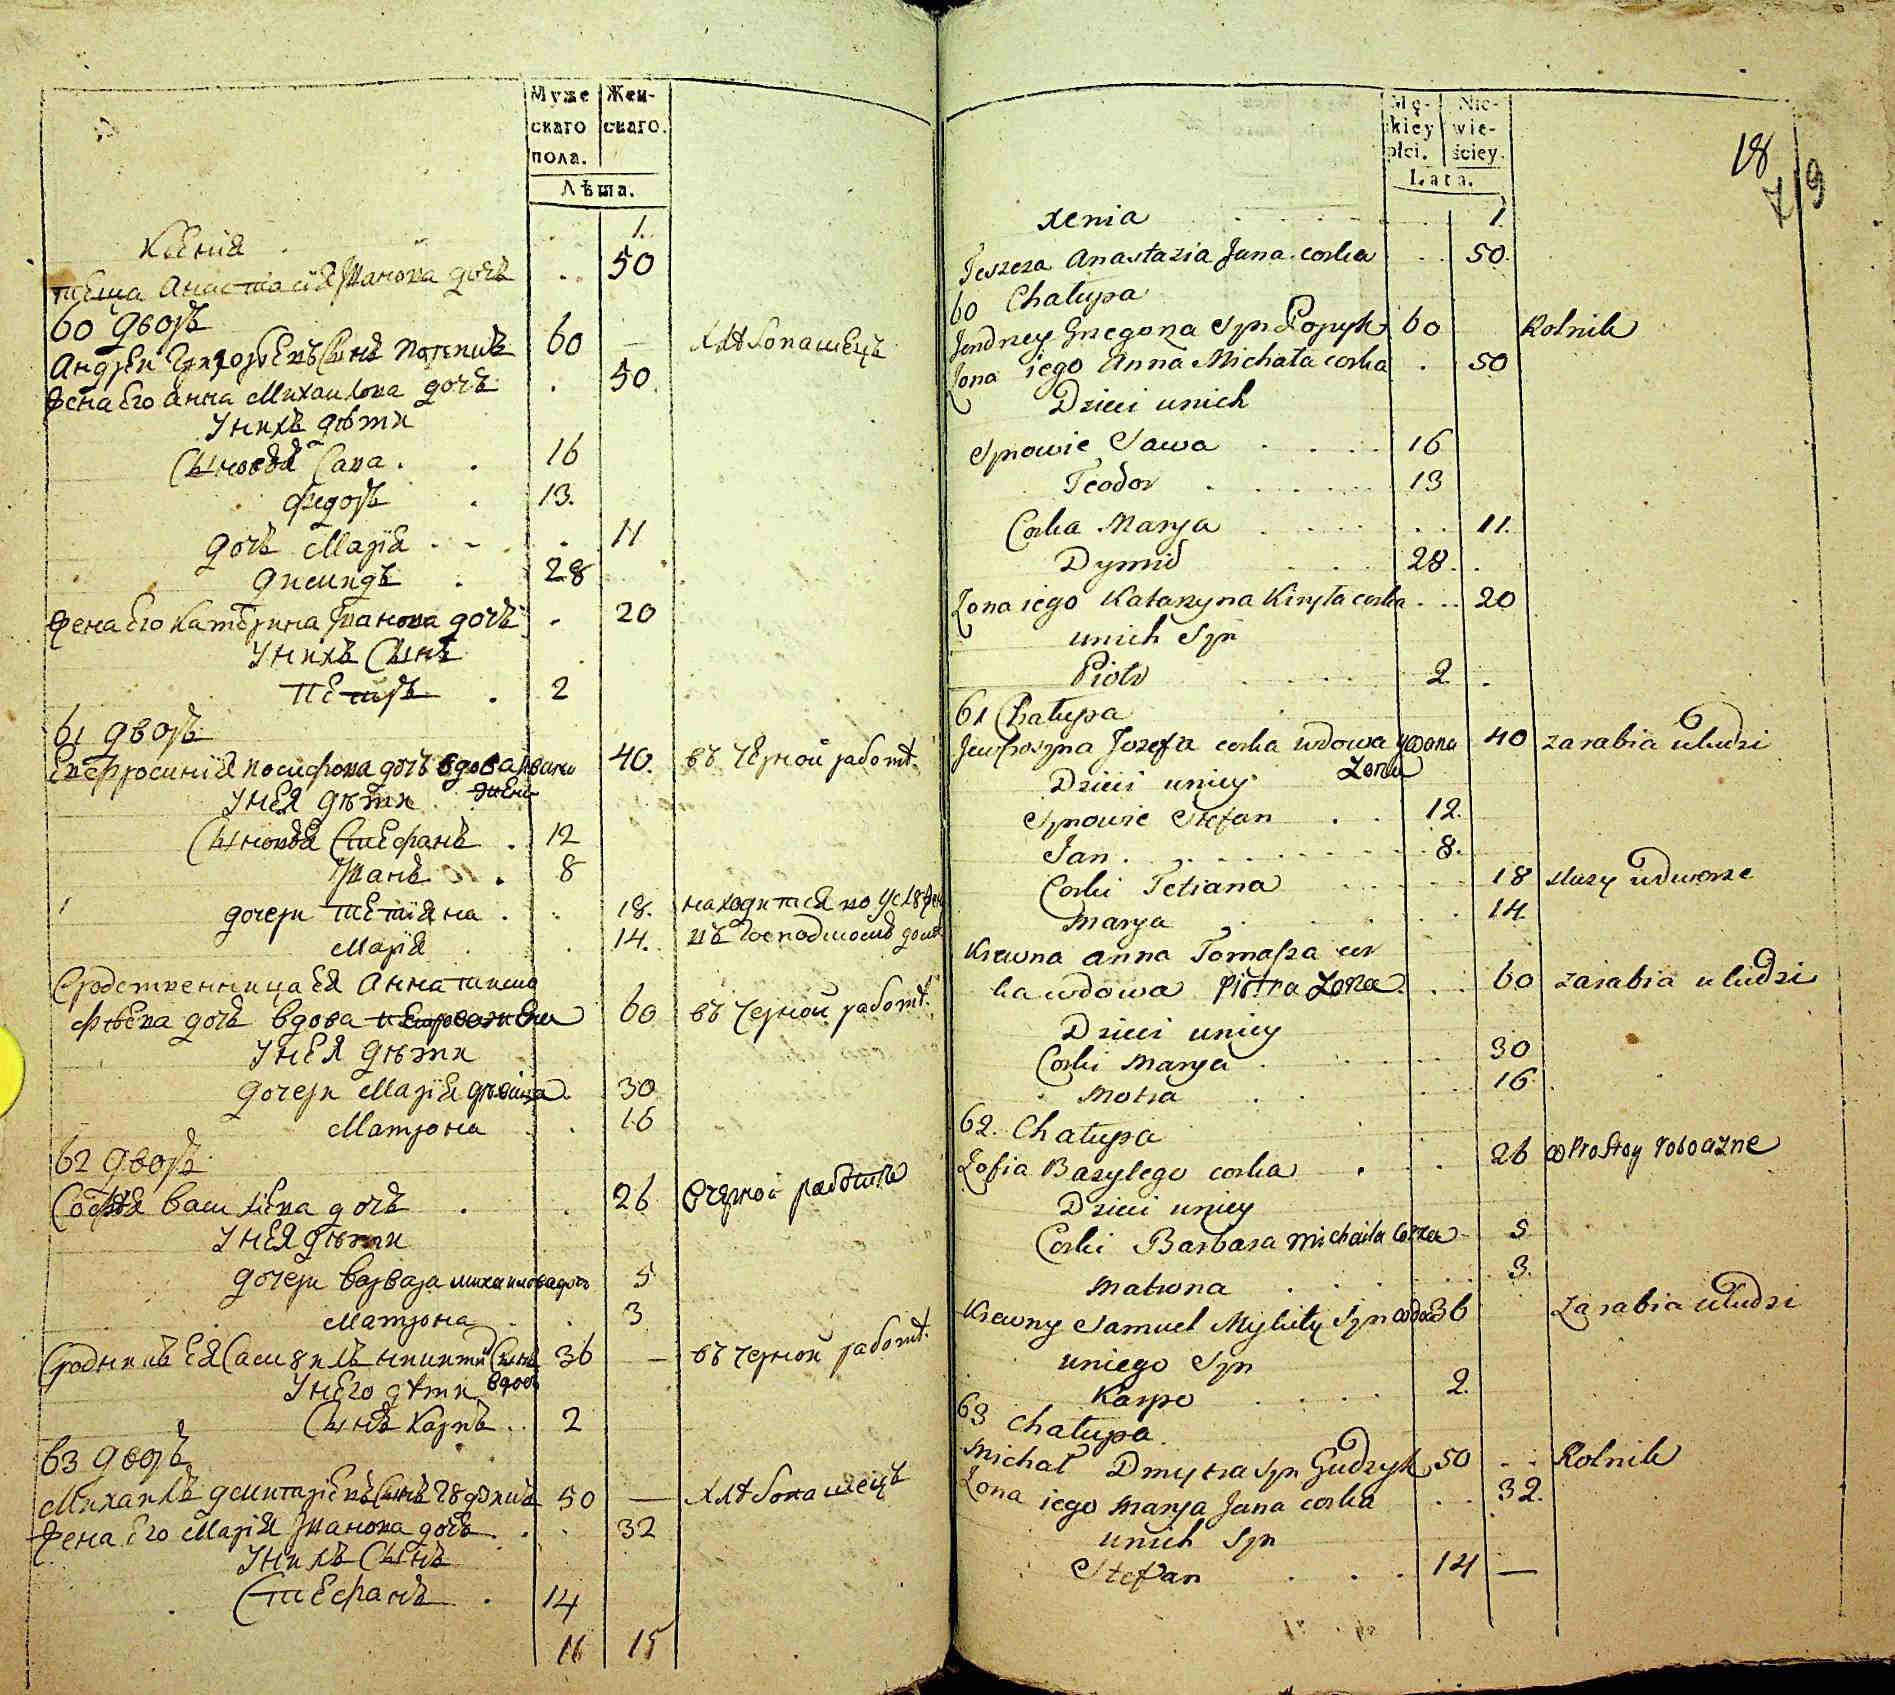 Муже
скаго
пола.
Жен-
скаго.
Лѣта.
Ксенія 1.
теща Анастасія Иванова дочь 50
60 дворъ
Андрей Григорьевъ Сынъ 60 хлѣбопашецъ
Жена Его Анна Михаилова дочь 50
У нихъ дѣти
Сыновья Сава 16
Федоръ 13.
дочь Марія 11
28
Жена Его Катерина Иванова дочь 20
У нихъ Сынъ
Петръ 2
61 дворъ
Евфросинія иосифова дочь вдова Ивана 40. въ черной работѣ.
жена
У нея дѣти
Сыновья Стефанъ 12
Иванъ 8
дочери Тетіяна 18. находится
Марія 14. въ Господскомъ домѣ
Сродственница Ея Анна
дочь вдова Петрова жена 60 въ черной работѣ.
У нея дѣти
дочери Марія дѣвица 30
Матрона 16
62 дворъ
Софія Васильева дочь 26 в черной работѣ
У нея дѣти
дочери Варвара михаилова дочь 5
Матрона 3
Сродникъ Ея Самуилъ Никиты Сынъ 36 — въ черной работѣ.
вдов
У него дѣти
Сынъ Карпъ 2
63 дворъ
Михаилъ Дмитріевъ Сынъ 50 — хлѣбопашецъ
Жена Его Марія Иванова дочь 32
У нихъ Сынъ
Стефанъ 14
16 15
Mę-
kiey
płci.
Nie-
wie-
ściey.
Lata.
18
Xenia 1.
Teszcza Anastazia Jana corka 50.
60 Chałupa
Jendrzey Grzegorza Syn Popyk 60 Rolnik
Zona iego Anna Michała corka 50
Dzieci u nich
Synowie Sawa 16
Teodor 13
Corka Marya 11.
Dymid 28
Zona iego Katarzyna Kiryła corka 20
u nich Syn
Piotr 2
61 Chałupa
Jewfroszyna Jozefa corka wdowa Jwana 40 zarabia u ludzi
Zona
Dzieci u niey
Synowie Stefan 12.
Jan 8.
Corki Tetiana 18 słuzy u dworze
Marya 14
Krewna Anna Tomasza cor
ka wdowa Piotra Zona 60 zarabia u ludzi
Dzieci u niey
Corki Marya 30
Motra 16
62. Chałupa
Zofia Bazylego corka 26 w Prostey roboczne
Dzieci u niey
Corki Barbara Michaiła Corka 5
Matrona 3.
Krewny Samuel Mykity Syn wdow 36 zarabia u ludzi
u niego Syn
Karpo 2.
63 Chałupa
Michał Dmytra Syn Gudzyk 50 Rolnik
Zona iego Marya Jana corka 32.
u nich Syn
Stefan 14 —